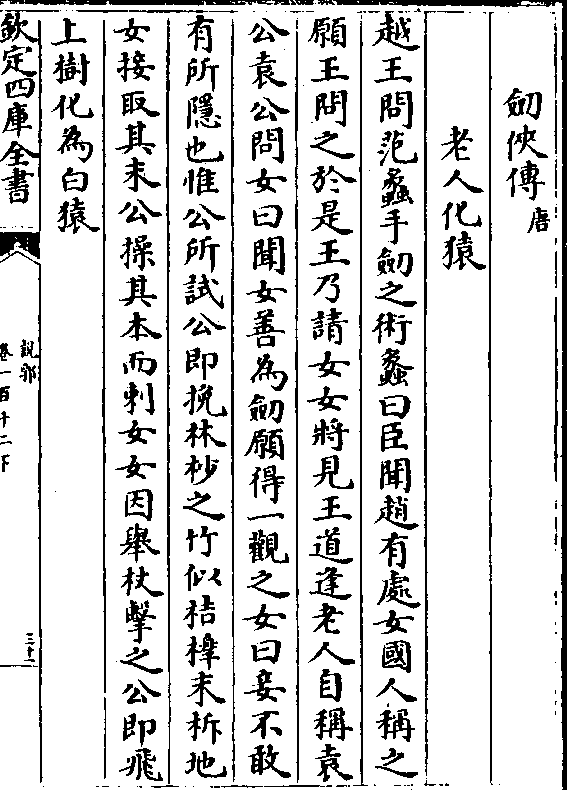 劒俠傳唐
老人化猿
越王問范蠡手劒之術蠡曰臣聞趙有處女國人稱之
願王問之於是王乃請女女將見王道逢老人自稱袁
公袁公問女曰聞女善為劒願得一觀之女曰妾不敢
有所隱也惟公所試公即挽林杪之竹似桔橰末折地
女接取其末公操其本而刺女女因舉杖擊之公即飛
上樹化為白猿
欽定四庫全書
說郛
卷一百十二下
三十一